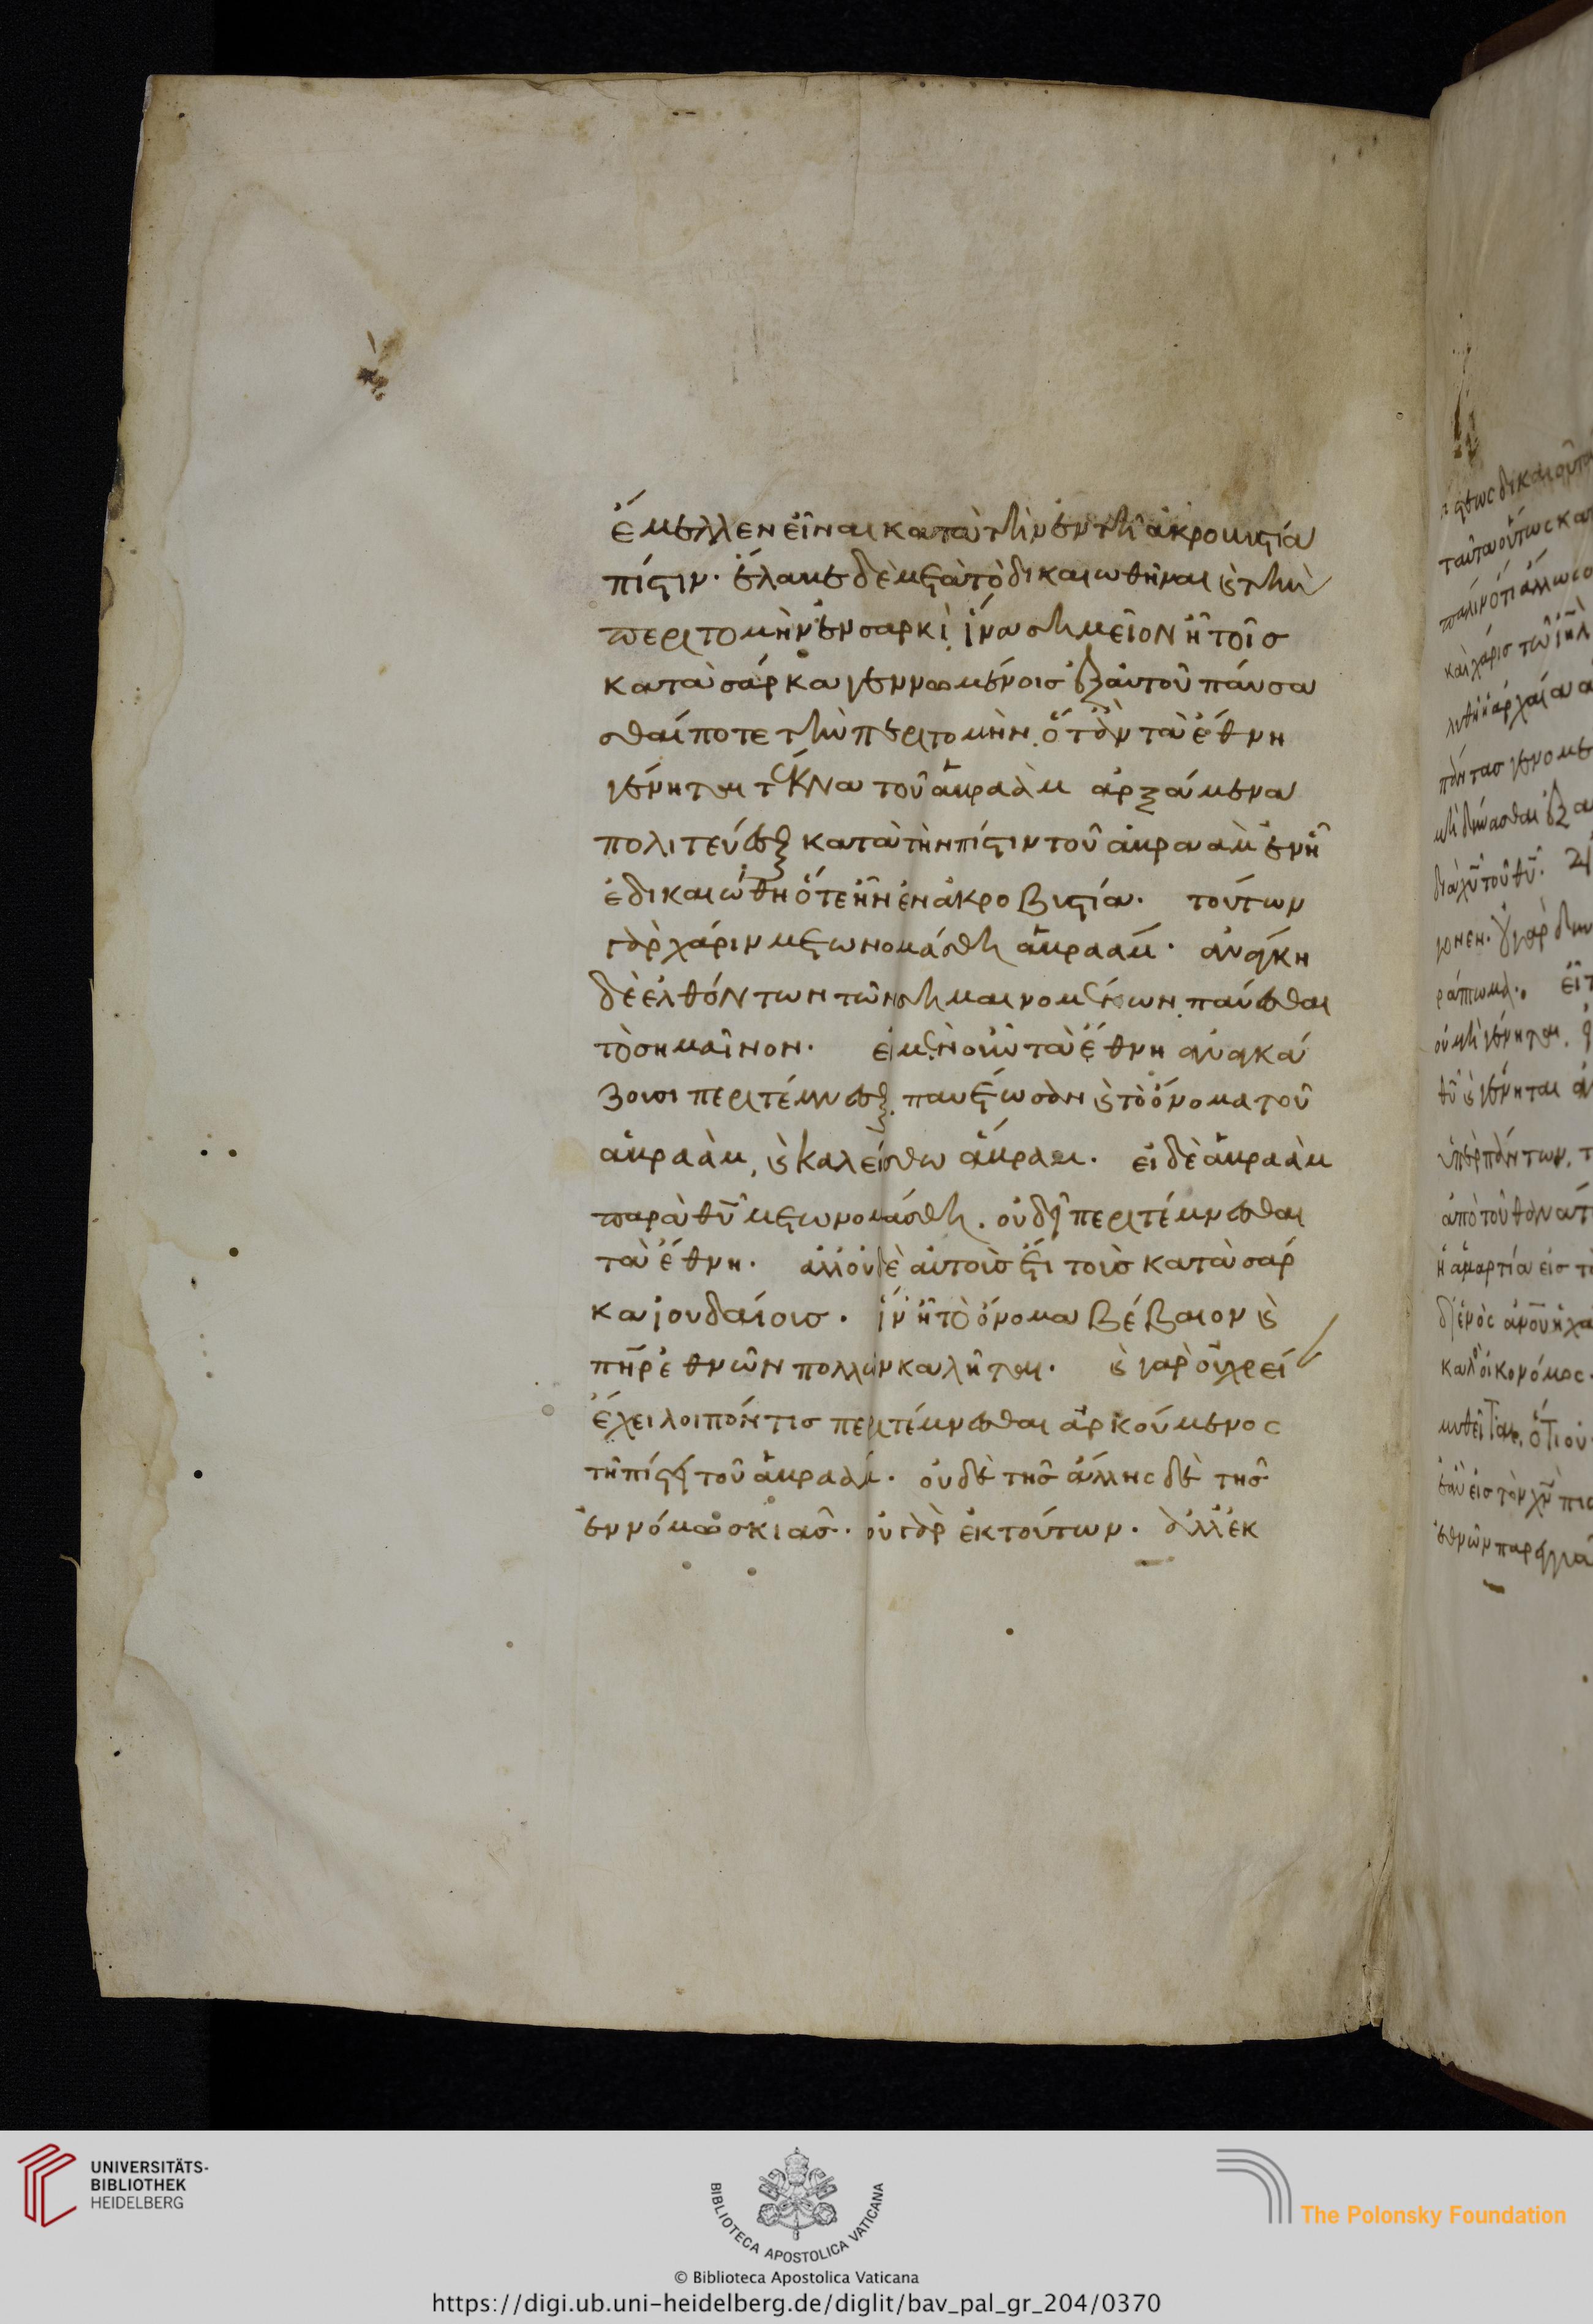 ἔμελλεν εἶναι κατὰ τὴν ἐν τῆ ἀκροβυστία
πίστιν. ἔλαβε δὲ μετὰ τὸ δικαιωθῆναι καὶ τὴν
περιτομὴν ἐν σαρκὶ, ἵνα σημεῖον ἦ τοῖσ
κατὰ σάρκα γεννωμένοισ ἐξ αὐτοῦ παύσα
σθαί ποτε τὴν περιτομὴν. ὅτὰν τὰ ἔθνη
γένηται τέκνα τοῦ ἀβραὰμ ἀρξάμενα
πολιτεύεσθαι κατὰ τὴν πίστιν τοῦ ἀβρααμ ἐν ἧ
ἐδικαιώθη ὅτε ἦν ἐν ἀκροβυστία. τούτων
γὰρ χάριν μετωνομάσθη ἀβραάμ. ἀνάγκη
δὲ ἐλθόντων τῶν σημαινομένων, παύεσθαι
τὸ σημαῖνον. εἰ μὲν οὖν τὰ ἔθνη ἀναγκά
ζουσι περιτέμνεσθαι, παυέτωσὰν καὶ τὸ ὄνομα τοῦ
ἀβραὰμ, καὶ καλείσθω ἄβραμ. εἰ δὲ ἀβραὰμ
παρὰ θῡ μετωνομάσθη. οὐ δεῖ περιτέμνεσθαι
τὰ ἔθνη. ἀλλ' οὐδὲ αὐτοῖσ ἔτι τοῖσ κατὰ σάρ
κα ἰουδαίοισ. ἵν' ἦ τὸ ὄνομα βέβαιον καὶ
πη̄ρ ἐθνῶν πολλῶν καλῆται. καὶ γὰρ οὐ χρεί
έχει λοιπόν τισ περιτέμνεσθαι ἀρκούμενοσ
τῆ πίστει τοῦ ἀβραάμ. οὐδὲ τῆσ ἄλλησ δὲ τῆσ
ἐν νόμω σκιᾶσ. οὐ γὰρ ἐκ τούτων. ἀλλ' ἐκ
UNIVERSITÄTS-
BIBLIOTHEK
HEIDELBERG
BIBLIOTECA APOSTOLICA VATICANA
The Polonsky Foundation
© Biblioteca Apostolica Vaticana
https://digi.ub.uni-heidelberg.de/diglit/bav_pal_gr_204/0370